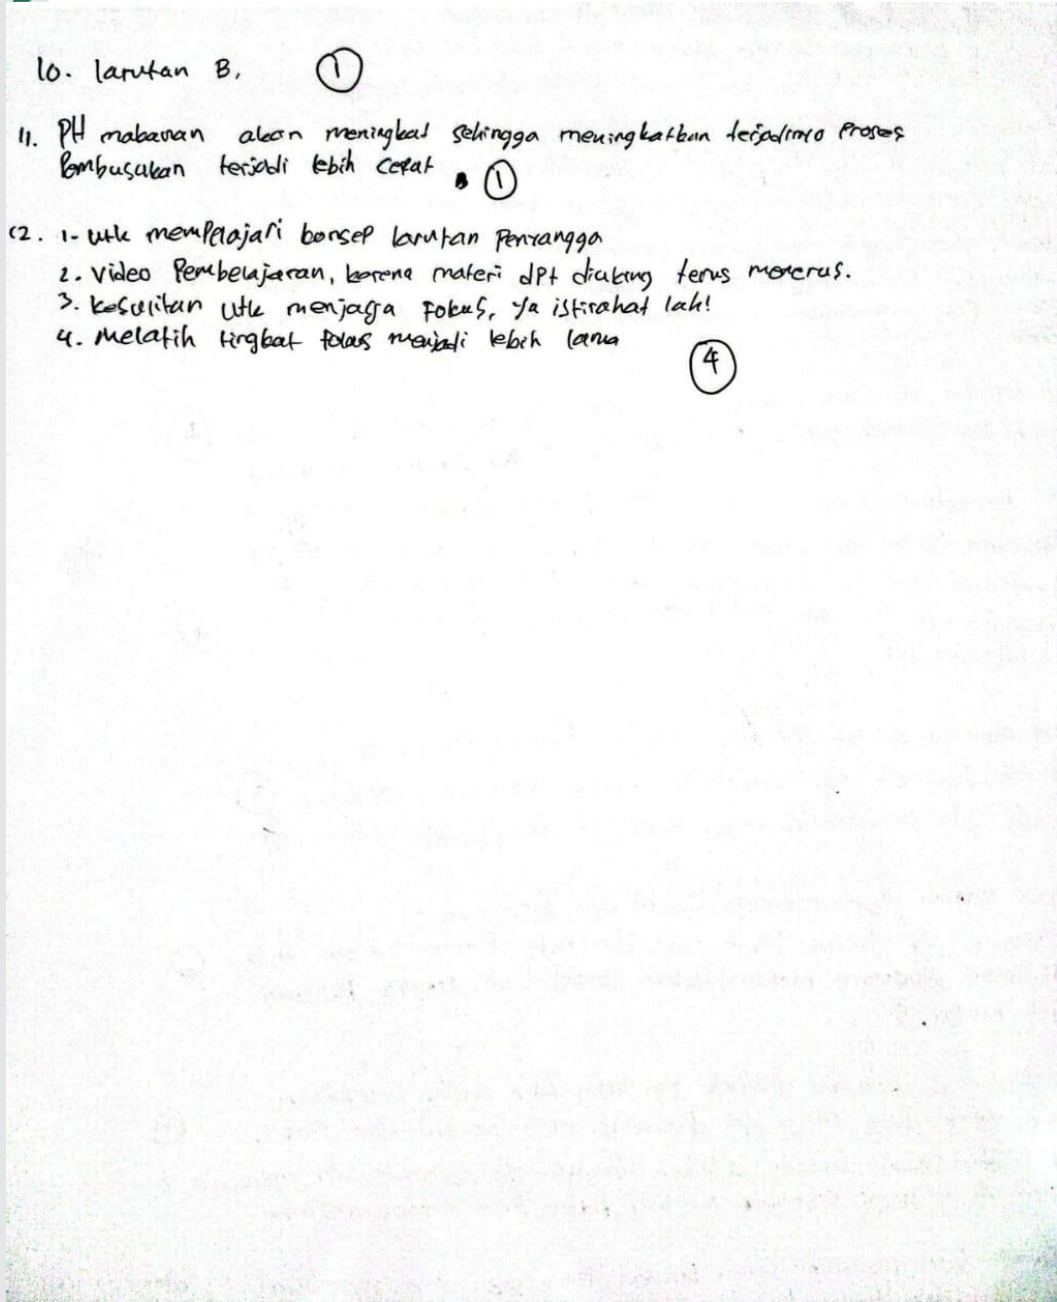 10. larutan B, ①
11. PH makanan akan meningkat sehingga meningkatkan terjadinya Proses
Pembusukan terjadi lebih cepat. ①
12. 1- utk mempelajari konsep larutan Penyangga
2. Video Pembelajaran, karena materi dpt diulang terus menerus.
3. kesulitan utk menjaga Fokus, ya istirahat lah!
4. Melatih tingkat fokus menjadi lebih lama
④